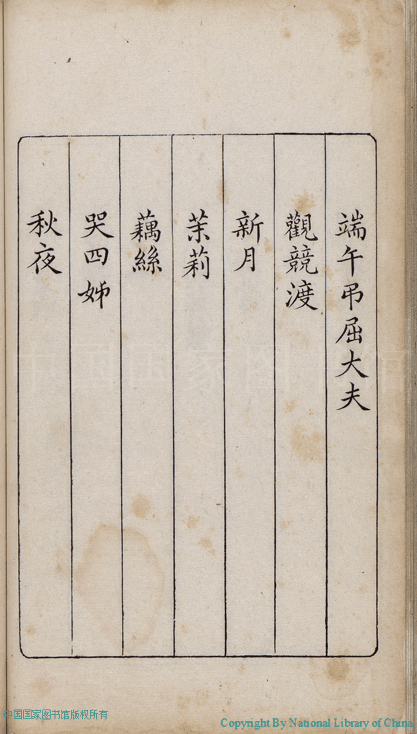 端午弔屈大夫
觀競渡
新月
茉莉
藕絲
哭四姊
秋夜
中国国家图书馆
中国国家图书馆版权所有
Copyright By National Library of China